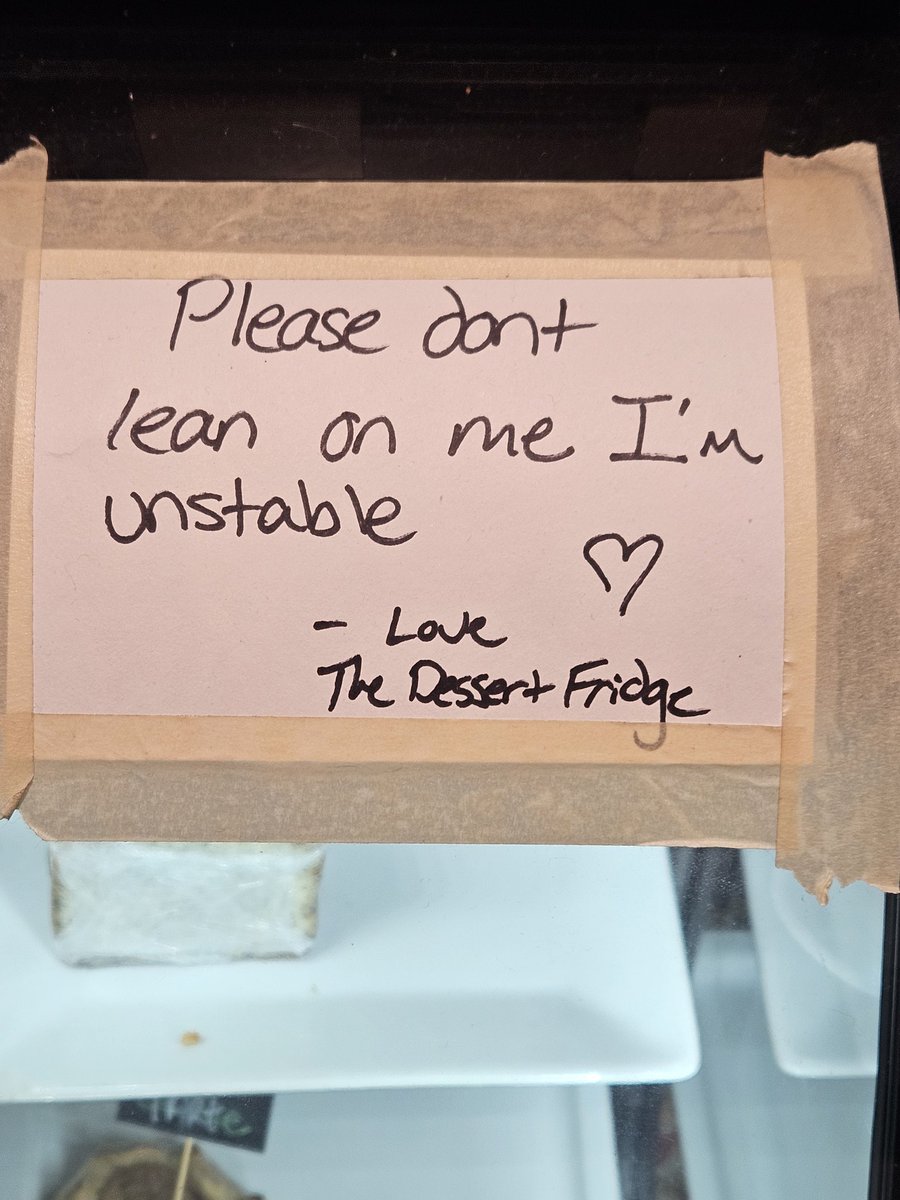 Please dont
lean on me I'm
unstable
♡
- Love
The Dessert Fridge